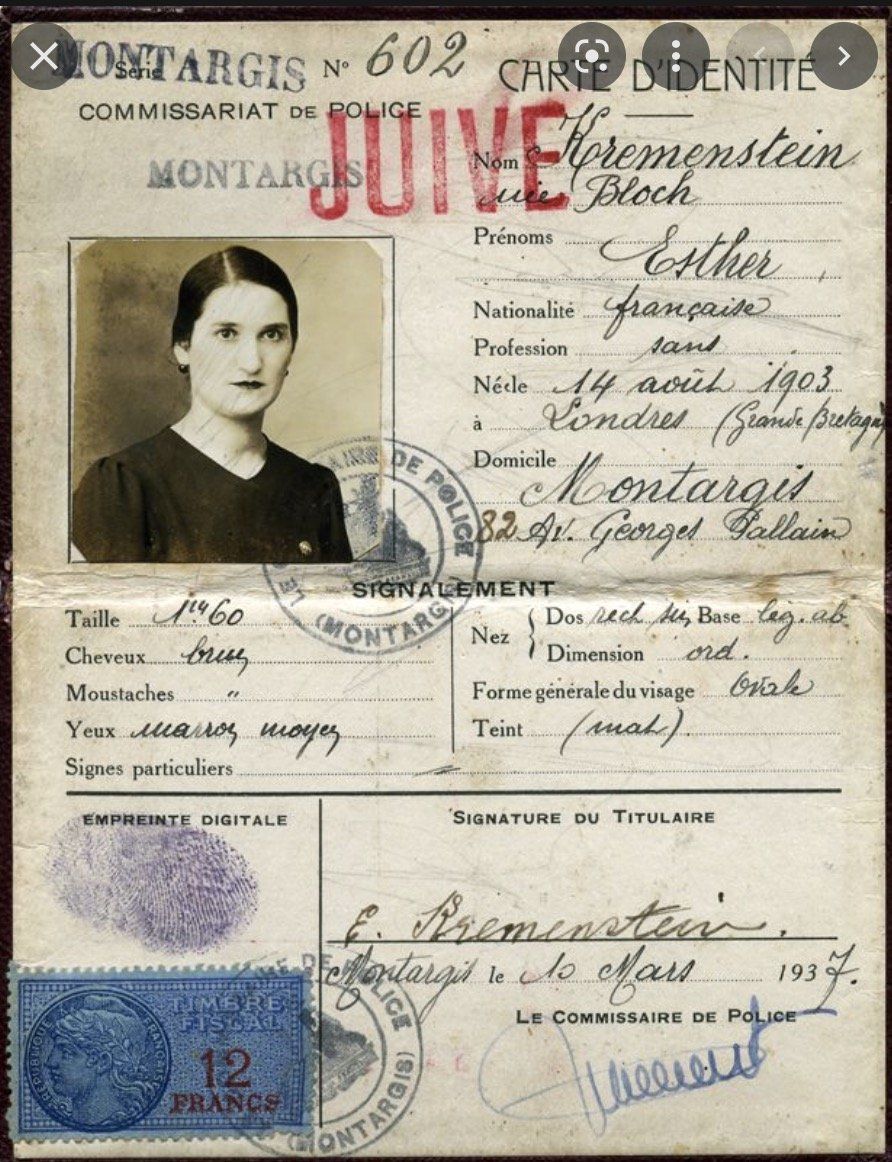 MONTARGIS
Série N° 602
COMMISSARIAT DE POLICE
MONTARGIS
JUIVE
CARTE D'IDENTITÉ
Nom Kremenstein
née Bloch
Prénoms
Esther
Nationalité française
Profession sans
Né&le 14 août 1903
à Londres (Grande Bretagne)
Domicile
Montargis
82 Av. Georges Pallain
SIGNALEMENT
Taille 1m60
Cheveux brun
Moustaches "
Yeux marron moyen
Signes particuliers
Nez
Dos rect Base leg. ab
Dimension ord.
Forme générale du visage Ovale
Teint (mat)
DE POLICE
(MONTARGIS)
EMPREINTE DIGITALE
SIGNATURE DU TITULAIRE
E. Kremenstein.
Montargis le 10 Mars 1937.
LE COMMISSAIRE DE POLICE
TIMBRE
FISCAL
12
FRANCS
RÉPUBLIQUE FRANÇAISE
DE POLICE
(MONTARGIS)